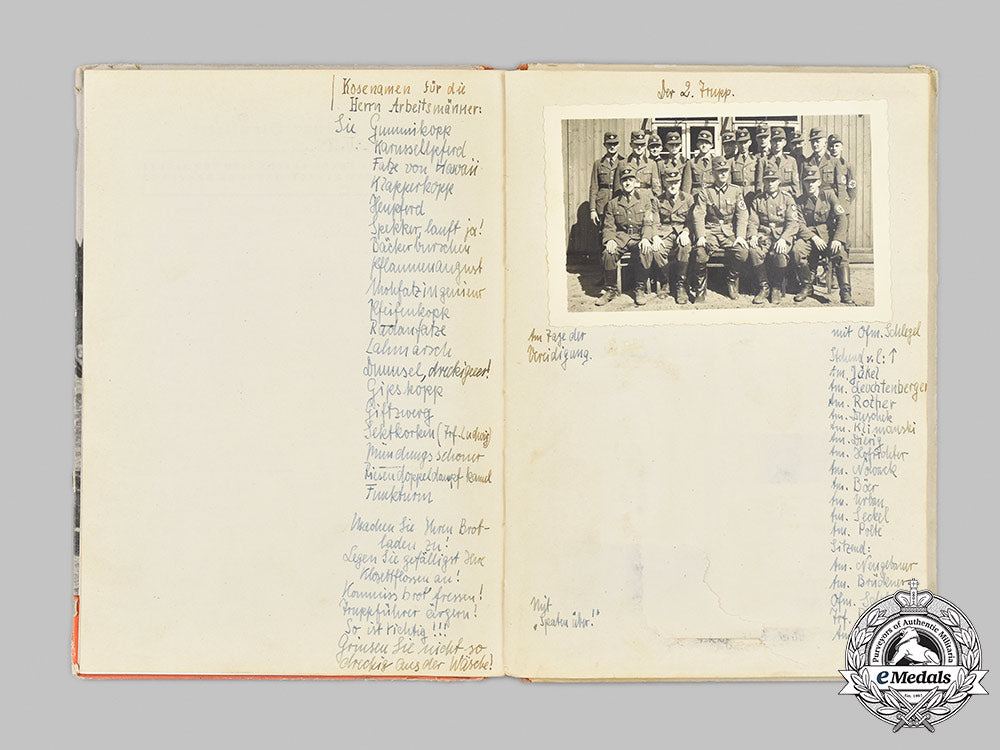 Kosenamen für die
Herrn Arbeitsmänner:
Sie Gummikopp
Karussellpferd
Fatze von Hawaii
Klapperkopp
Heupferd
Spekker, lauft ja!
Bäckerburschen
Pflaumenaugust
Mohfatzingenieur
Pfeifenkopp
Radaufatze
Lahmarsch
Dummsel, dreckiger!
Gipskopp
Giftzwerg
Sektkorken (Trf. Ludwig)
Mündungsschoner
Riesendoppeldampfkamel
Funkturm
Machen Sie Ihren Brot-
laden zu!
Legen Sie gefälligst Ihre
Klosettflossen an!
Kommissbrot fressen!
Truppführer ärgern!
So ist richtig!!!
Grinsen Sie nicht so
dreckig aus der Wäsche!
Der 2. Trupp.
Am Tage der
Vereidigung.
mit Ofm. Schlegel
Stehend v. l.: ↑
Am. Jäkel
Am. Leuchtenberger
Am. Rother
Am. Duschek
Am. Klimanski
Am. Dierig
Am. Hofrichter
Am. Nowack
Am. Böer
Am. Urban
Am. Seckel
Am. Polte
Sitzend:
Am. Neugebauer
Am. Brückner
Ofm.
Mit
„Spaten über!"
Purveyors of Authentic Militaria
eMedals
Est. 1967